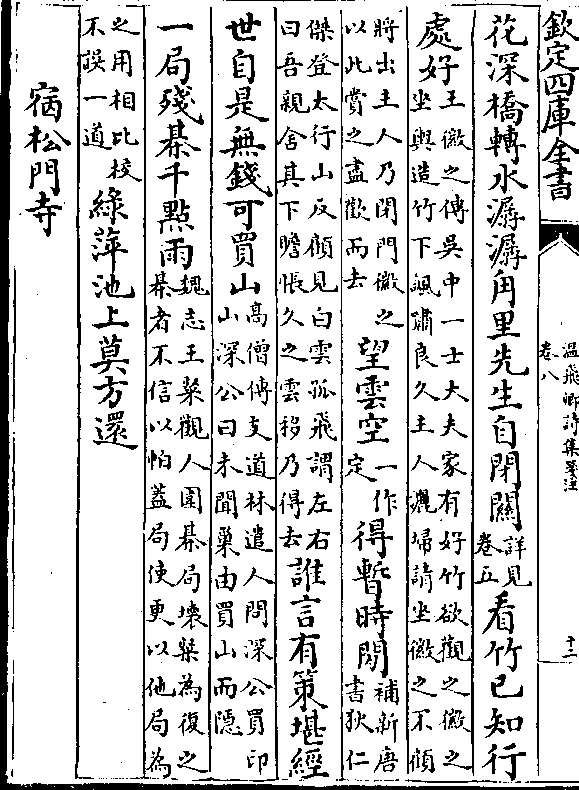 欽定四庫全書
温飛卿詩集箋注
卷八
十二
花深橋轉水潺潺甪里先生自閉關詳見卷五看竹已知行
處好王徽之傳吳中一士大夫家有好竹欲觀之徽之坐輿造竹下諷嘯良久主人灑埽請坐徽之不顧
將出主人乃閉門徽之以此賞之盡歡而去望雲空一作定得暫時閒補新唐書狄仁
傑登太行山反顧見白雲孤飛謂左右曰吾親舍其下瞻悵久之雲移乃得去誰言有策堪經
世自是無錢可買山高僧傳支道林遣人問深公買印山深公曰未聞巢由買山而隱
一局殘棊千點雨魏志王粲觀人圍棊局壞粲為復之棊者不信以帕蓋局使更以他局為
之用相比校不誤一道綠萍池上莫方還
宿松門寺